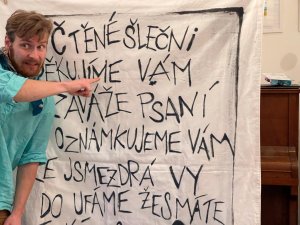 ČTĚNÉ ŠLEČNI
ĚKUJÍME VÁM
ZAVÁŽE PSANÍ
OZNÁMKUJEME VÁM
E JSMEZDRÁ VY
DO UFÁME ŽESMÁTE